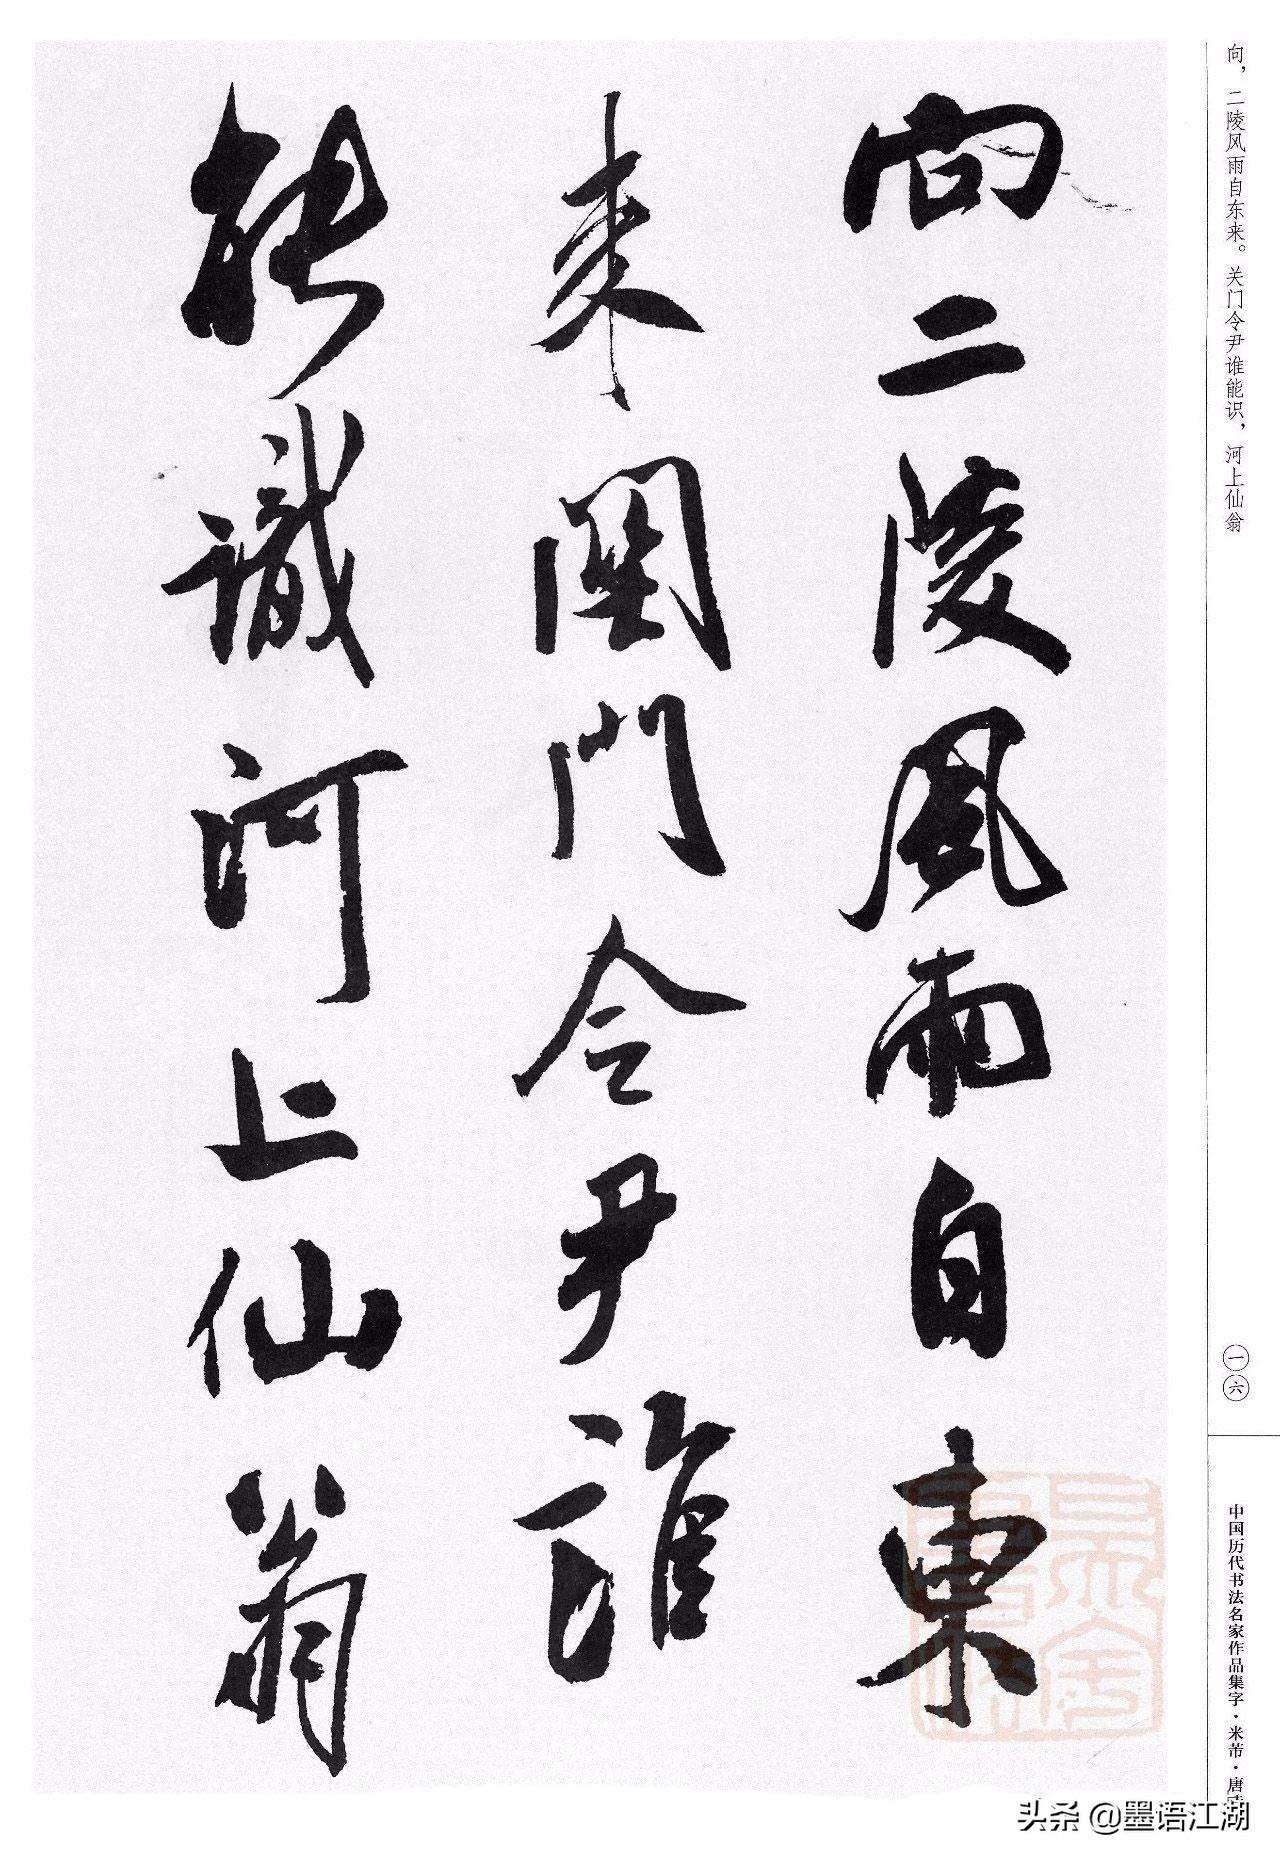 向，二陵风雨自东来。关门令尹谁能识，河上仙翁
向二陵風雨自東
来関門令尹誰
能識河上仙翁
一六
中国历代书法名家作品集字·米芾·唐诗
头条 @墨语江湖